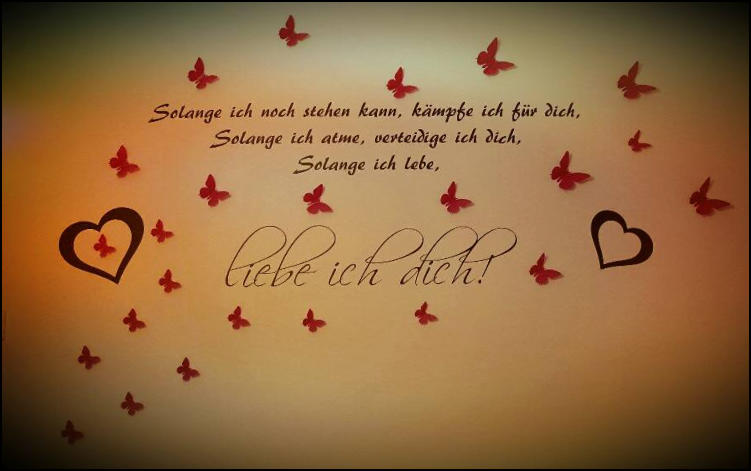 Solange ich noch stehen kann, kämpfe ich für dich,
Solange ich atme, verteidige ich dich,
Solange ich lebe,
liebe ich dich!